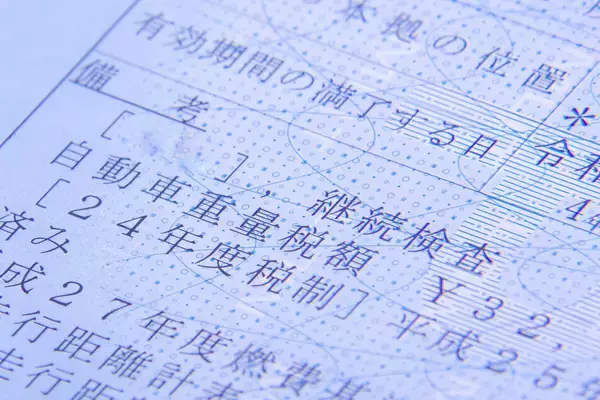 の本拠の位置 *
有効期間の満了する日 令和
44
備 考
[ ], 継続検査
自動車重量税額 Y32,
[24年度税制] 平成25年
済み
成27年度燃費基
走行距離計表
走行距